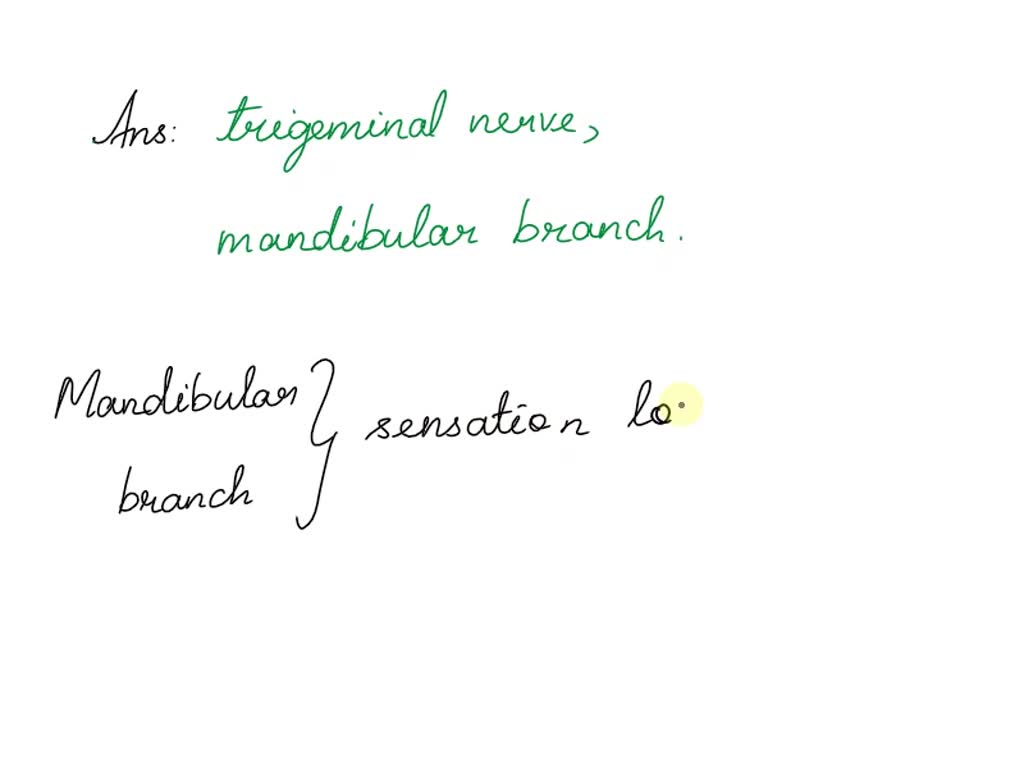 Ans: trigeminal nerve,
mandibular branch.
Mandibular
branch
sensation lo